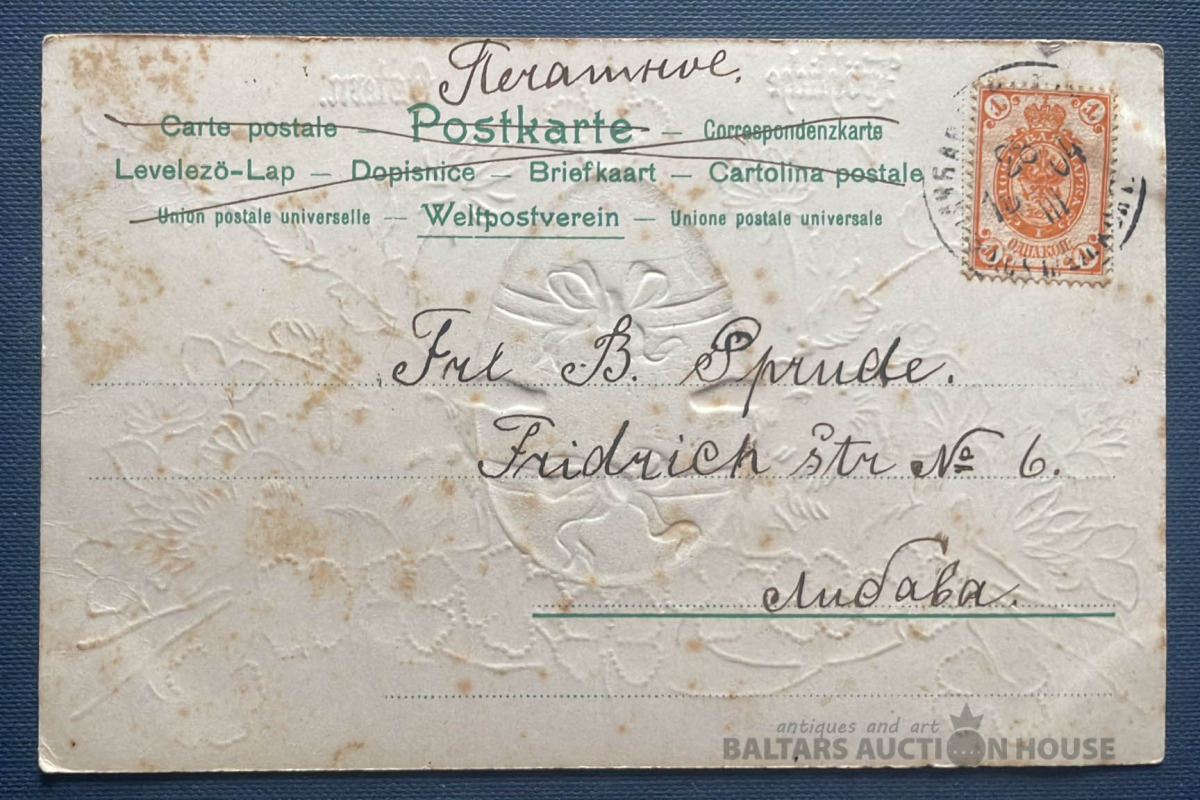 Печатное.
Carte postale — Postkarte — Correspondenzkarte
Levelezö-Lap — Dopisnice — Briefkaart — Cartolina postale
Union postale universelle — Weltpostverein — Unione postale universale
1 1
ОДНА КОП.
Frl B. Sprude.
Fridrich str № 6.
Либава.
antiques and art
BALTARS AUCTION HOUSE